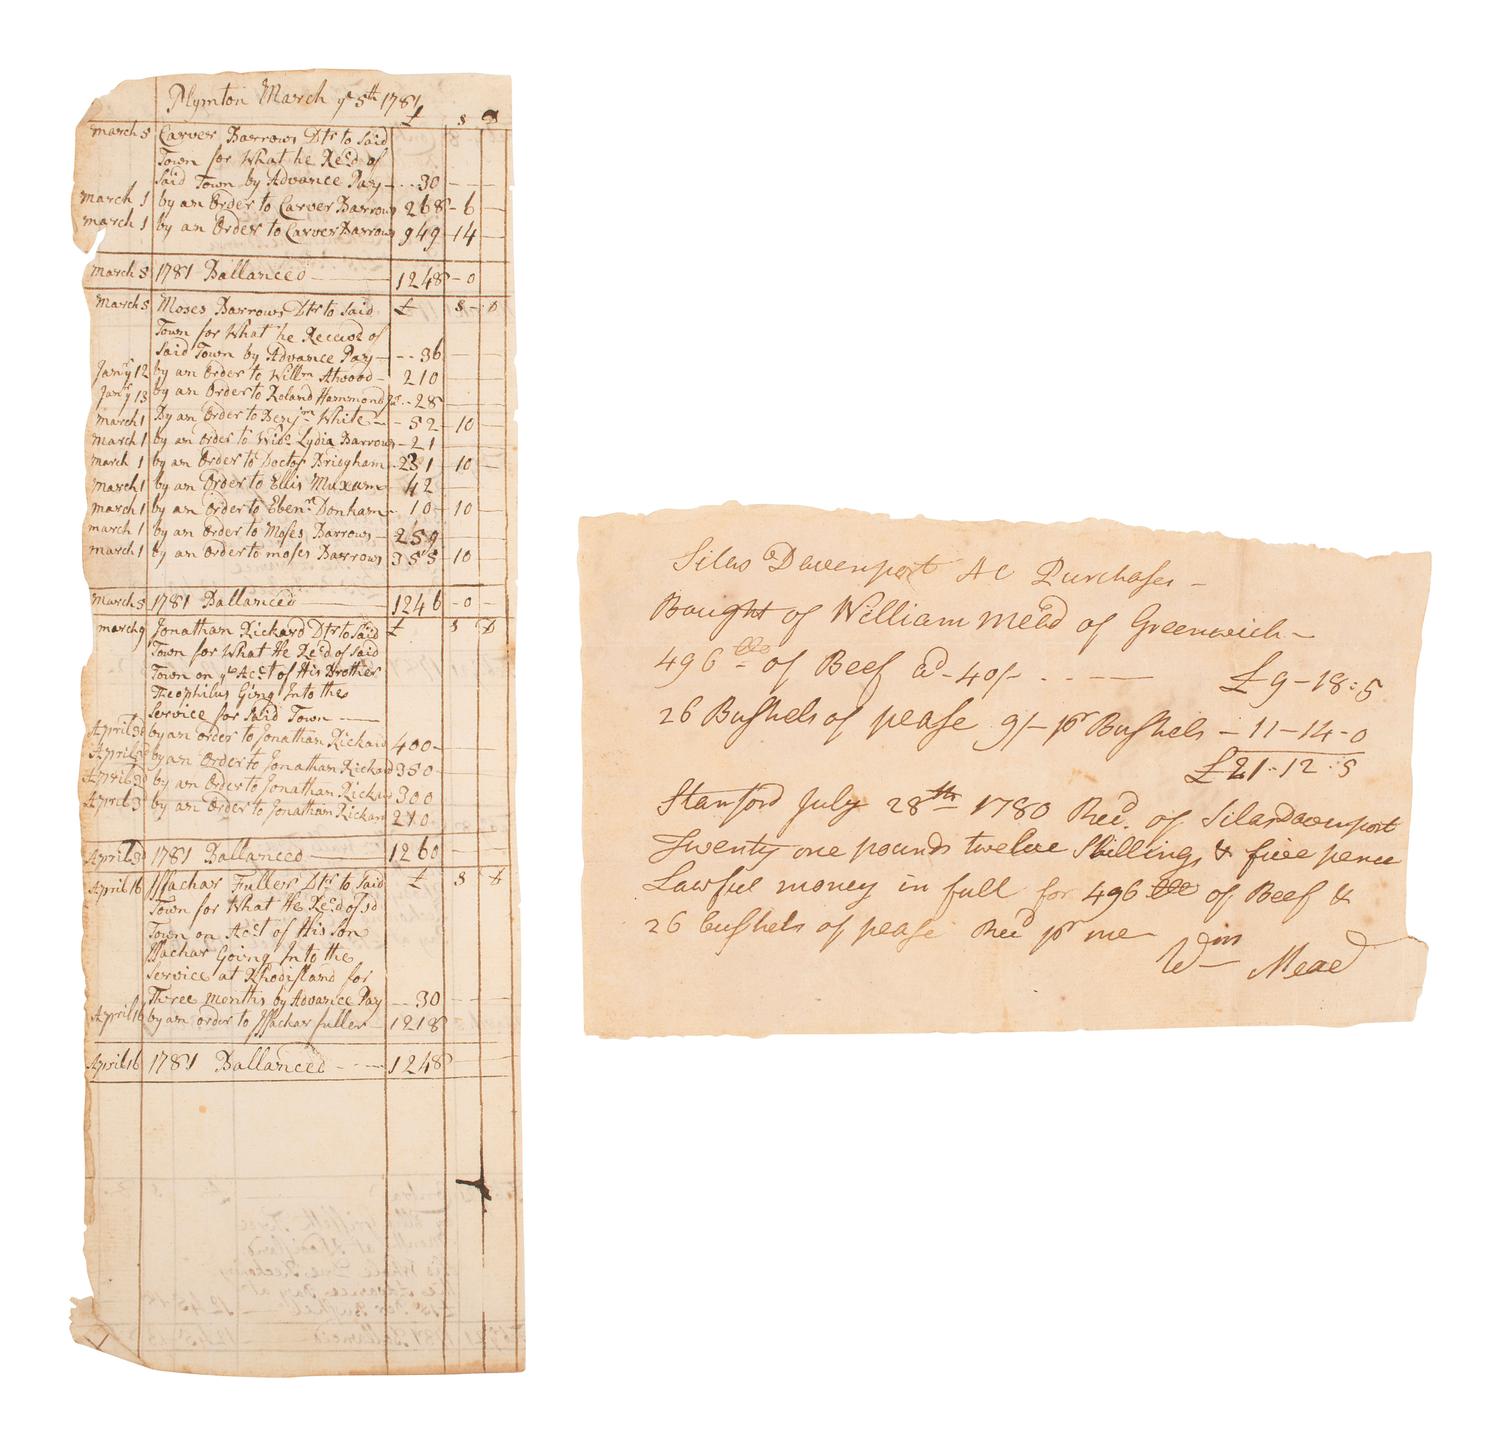 Plymton March ye 5th 1781
£ s D
march 5 Carver Barrows Dtr to Said
Town for What he Recd of
Said Town by Advance Pay - - - 30
march 1 by an Order to Carver Barrows 268 - 6
march 1 by an Order to Carver Barrows 949 - 14
march 5 1781 Ballanced 1248 - 0
march 5 Moses Barrows Dtr to Said £ s - D
Town for What he Received of
Said Town by Advance Pay - - - 36
Jany 12 by an Order to Willm Atwood - 210
Jany 13 by an Order to Roland Hammond - 28
march 1 By an Order to Benjmn White - - 52 - 10
march 1 by an Order to Wido Lydia Barrows - 21
march 1 by an Order to Doctor Bridgham - 231 - 10
march 1 by an Order to Ellis Muxum 42
march 1 by an Order to Ebenr Donham - 10 - 10
march 1 by an Order to Moses Barrows - 259
march 1 by an Order to moses Barrows 355 - 10
march 5 1781 Ballanced 1246 - 0 -
march 9 Jonathan Rickard Dtr to Said £ s D
Town for What He Recd of Said
Town on ye Acct of His Brother
Theophilus Going Into the
Service for Said Town
April 3d by an order to Jonathan Rickard 400 -
April 3d by an Order to Jonathan Rickard 350 -
April 3d by an Order to Jonathan Rickard 300
April 3d by an Order to Jonathan Rickard 210
April 3d 1781 Ballanced 1260
April 16 Issachar Fuller Dtr to Said £ s D
Town for What He Recd of sd
Town on Acct of His Son
Issachar Going Into the
Service at Rhodisland for
Three months by Advance Pay - - 30
April 16 by an order to Issachar fuller 1218
April 16 1781 Ballanced - - - 1248
Silas Davenport AC Purchases -
Bought of William Mead of Greenwich -
496 lb of Beef ad - 40/- - - - £9 - 18 : 5
26 Bushels of pease 9/- pr Bushels - 11 - 14 - 0
£21 - 12 : 5
Stanford July 28th 1780 Recd. of Silas Davenport
Twenty one pounds twelve Shillings & five pence
Lawful money in full for 496 lb of Beef &
26 bushels of pease Recd pr me
Wm Mead